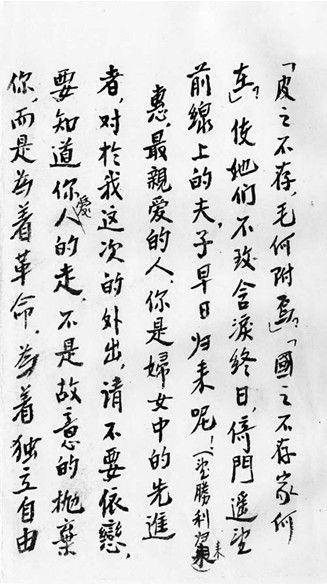 「皮之不存，毛何附焉？」「國之不存家何
在？」使她们不致含淚终日，倚門遥望
前線上的夫，子早日归来呢！（望勝利归来
惠，最親爱的人，你是婦女中的先進
者，对於我这次的外出，请不要依戀，
要知道你爱人的走，不是故意的抛棄
你，而是为着革命，为着独立自由